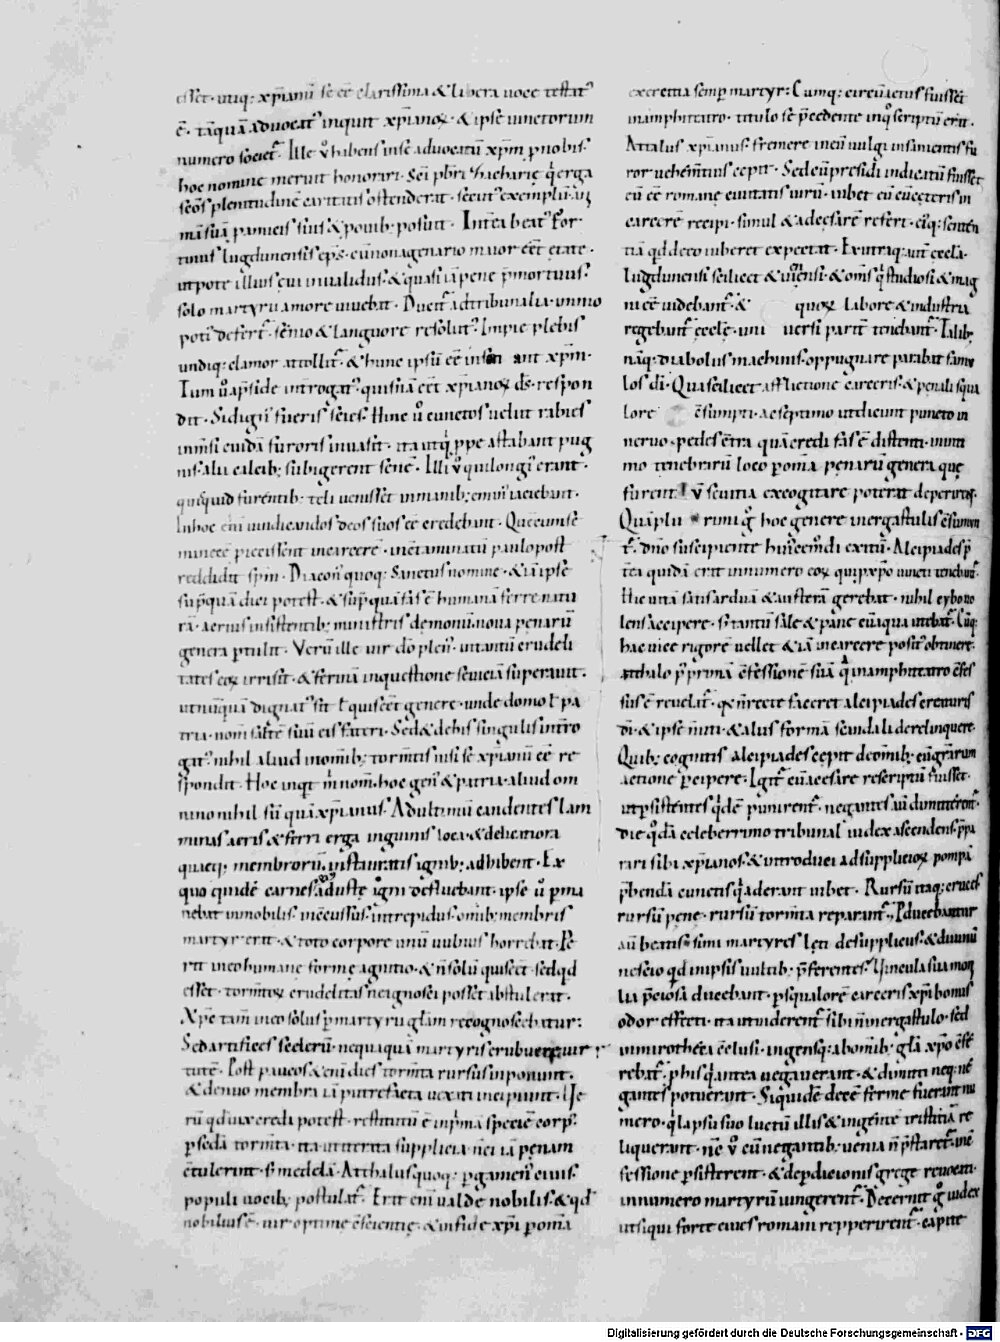 esset. utiq; xp̄ianū se eē clarissima & libera uoce testat᷒
ē. tāquā aduocat᷒ inquit xp̄ianoꝝ. & ipse iunctorum
numero societ᷒. Ille u̅ habens in se aduocatū xp̄m ꝓ nobis.
hoc nomine meruit honorari. Sc̄i pb̄ri zacharie q̄ erga
sc̄os plenitudinē caritatis ostenderat. secut᷒ exemplū. ut
tinus lugdunensis ep̄s. cū nonagenario maior eēt etate.
utpote illius cui inualidus. & quasi iā pene p̄mortuus.
solo martyrii amore uiuebat. Ducit᷒ ad tribunalia. unmo
poti᷒ defert᷒. senio & languore resolut᷒. Impie plebis
undiq; clamor attollit᷒. & hunc ipsū eē aiunt xp̄m.
Tum u̅ a p̄side introgat᷒. quisnā eēt xp̄ianoꝝ ds̄. respon
dit. Si dign᷒ fueris scies. Hinc u̅ cunctos uelut rabies
inm̄si cuidā furoris inuasit. ita utq̄ ꝓpe astabant pug
nis. alii calcib; subigerent senē. Illi u̅ qui longi᷒ erant.
quicquid furentib; teli uenisset in manib; emin᷒ iaciebant.
In hoc eni uindicandos deos suos eē credebant. Quē cū se
miuiuū piecissent in carcerē. incontaminatū paulo post
reddidit sp̄m. Diacon᷒ quoq; Sanctus nomine. & iā ipse
sup̄ quā dici potest. & sup̄ quā fas ē humanā ferre natu
rā. acrius insistentib; ministris demonū. noua penarū
genera ptulit. Verū ille uir dō plen᷒. in tantū crudeli
tates eoꝝ irrisit. & ferinā in questione seuiciā superauit.
ut nūquā dignat᷒ sit ł quis eēt genere. unde domo ł pa
tria. nom̄ saltē suū eis fateri. Sed & de his singulis intro
gat᷒. nihil aliud in omib; torm̄tis nisi se xp̄ianū eē re
spondit. Hoc inqt m̄ nom̄. hoc gen᷒ & patria. aliud om
nino nihil sū quā xp̄ianus. Ad ultimū candentes lam
minas aeris & ferri erga inguinis loca. & delicatiora
quaeq; membrorū instauratis ignib; adhibent. Ex
quo quidē carnes adustę igni defluebant. ipse u̅ ꝑma
nebat inmobilis. inconcussus. intrepidus. omib; membris
martyr erat. & toto corpore unū uulnus horrebat. Pe
rit in eo humane forme agnitio. & n̄ solū quis eēt. sed qd̄
esset. torm̄toꝝ crudelitas ne ignosci posset abstulerat.
Xp̄c tam̄ in eo solus ꝑ martyrii gl̄am recognoscebatur:
Sed artifices scelerū. nequaquā martyris erubuere uir
tutē. Post paucos & eni dies torm̄ta rursus inponunt.
& denuo membra iā putrefacta uexari incipiunt. Ve
rū qd̄ uix credi potest. restitutū ē in p̄ma specie corp᷒.
ꝑ sedā torm̄ta. ita ut iterata supplicia. n̄ ei iā penam
c̄tulerint. s; medelā. Atthalus quoq; ꝑgamen᷒ ciuis.
populi uocib; postulat᷒. Erat eni ualde nobilis. & qd̄
nobilius ē. uir optime c̄scientię. & in fide xp̄i ꝑ omia
exercitia semꝑ martyr: Cumq; circūactus fuisset
in amphiteatro. titulo se p̄cedente in q̊ scriptū erat.
Attalus xp̄ianus. fremere in eū uulgi insanientis fu
ror uehem̄tius cepit. Sed cū presidi indicatū fuisset
eū eē romane ciuitatis uirū. iubet eū cū cęteris in
carcere recipi. simul & ad cęsarē refert. eiq; senten
tiā qd̄ de eo iuberet expectat. Ex utraq; aut ęccła.
lugdunensi scilicet & uiēnensi. & om̄s q̄ studiosi & mag
ni eē uidebant᷒. & quoꝝ labore & industria
regebant᷒ ęccłę. uni uersi parit᷒ tenebant᷒. Talib;
nāq; diabolus machinis. oppugnare parabat famu
los dī. Qua scilicet afflictione carceris. & penali squa
lore c̄sumpti. ac septimo ut dicunt puncto in
neruo. pedes c̄tra quā credi fas ē distenti. inimi
mo tenebrarū loco ꝑ omia penarū genera quę
furent᷒ ł u̅ seuitia excogitare poterat deperirent.
Quā pluri rimi g̊ hoc genere in ergastulis c̄sumun
t᷒. dn̄o suscipiente hui᷒cem̄di exitū. Alcipiades p̄
terea quidā erat in numero eoꝝ qui p xp̄o iuncti tenebant᷒.
Hic uitā satis arduā & austerā gerebat. nihil cybi uo
lens accipere. s; tantū sale & pane cū aqua utebat᷒. Cūq;
hac uice rigore uellet & iā in carcere posit᷒ obtinere.
atthalo p᷒ primā c̄fessionē suā q̄ in amphiteatro c̄fes
sus ē reuelat᷒. qd̄ n̄ recte faceret alcipiades creaturis
dī. & ipse n̄ uti. & aliis formā scandali derelinquere.
Quib; cognitis alcipiades cepit de omib; cū gr̄arum
actione ꝑcipere. Igit᷒ cū a cęsare rescriptū fuisset.
ut psistentes qidē punirent᷒. negantes aū dimitterent᷒.
die qdā celeberrimo tribunal iudex ascendens. p̄pa
rari sibi xp̄ianos. & introduci ad supplicioꝝ pompā
p̄bendā cunctis q̄ aderant iubet. Rursū itaq; cruces
rursū pene. rursū torm̄ta reparant᷒. Pducebantur
aū beatissimi martyres lęti de suppliciis. & diuinū
nescio qd̄ in ipsis uultib; p̄ferentes. Vincula sua moni
lia p̄ciosa ducebant. ꝑ squalorē carceris xp̄i bonus
odor effecti. ita ut uiderent᷒ sibi n̄ in ergastulo. sed
in mirotheca c̄clusi. ingens q; ab omib; gl̄a xp̄o c̄fe
rebat᷒. ꝑ his q̄ antea negauerant. & dimitti neq; ne
gantes potuerunt. Si quidē decē ferme fuerant nu
mero. q̄ lapsu suo luctū illis & ingentē tristitiā re
liquerunt. ne u̅ cū negantib; uenia n̄ p̄staret᷒. in c̄
fessione psisterent. & de perdicionis grege reuocati.
in numero martyrū iungerent᷒. Decernit g̊ iudex
ut siqui forte ciues romani repperirent᷒. capite
Digitalisierung gefördert durch die Deutsche Forschungsgemeinschaft - DFG